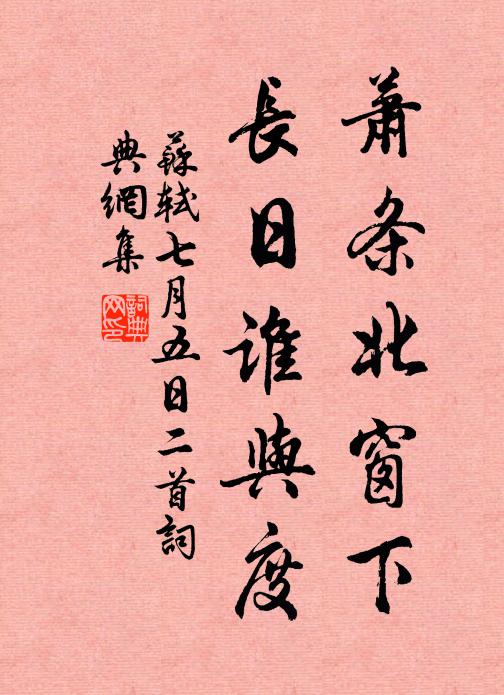 蕭条北窗下
長日誰與度
蘇軾七月五日二首詞
典網集
詞典網印